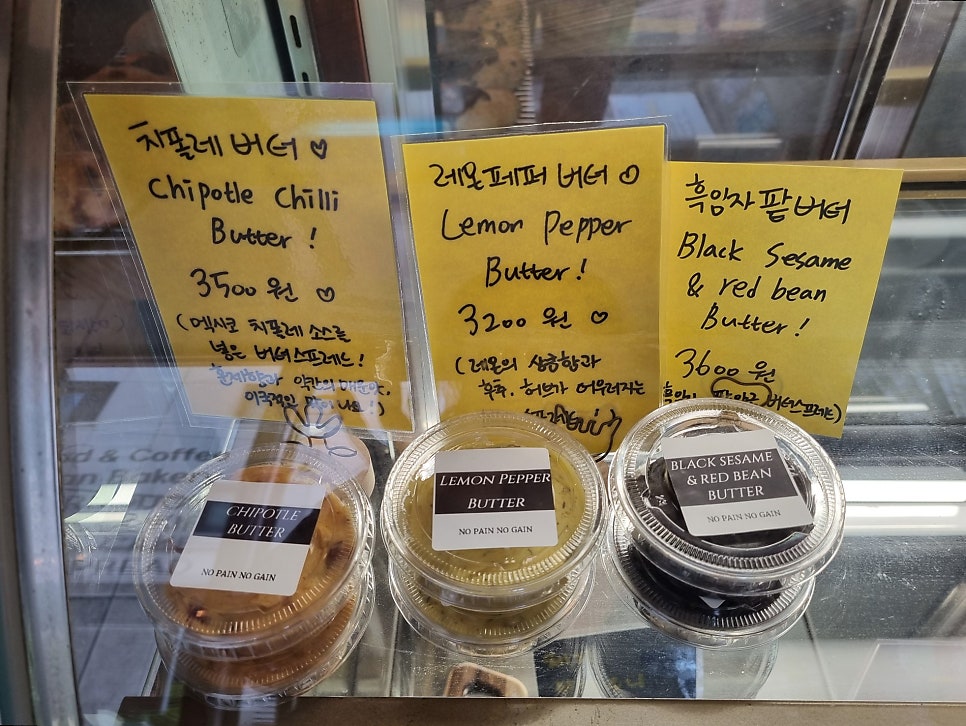 치폴레 버터 ♡
Chipotle Chilli
Butter !
3500 원 ♡
(멕시코 치폴레 소스를
넣은 버터스프레드!
훈제향과 약간의 매운맛,
이국적인 맛이 나요!)
레몬페퍼 버터 ♡
Lemon Pepper
Butter!
3200 원 ♡
(레몬의 상큼함과
후추, 허브가 어우러지는
흑임자 팥버터
Black Sesame
& red bean
Butter!
3600 원
버터스프레드)
& Coffee
CHIPOTLE
BUTTER
NO PAIN NO GAIN
LEMON PEPPER
BUTTER
NO PAIN NO GAIN
BLACK SESAME
& RED BEAN
BUTTER
NO PAIN NO GAIN